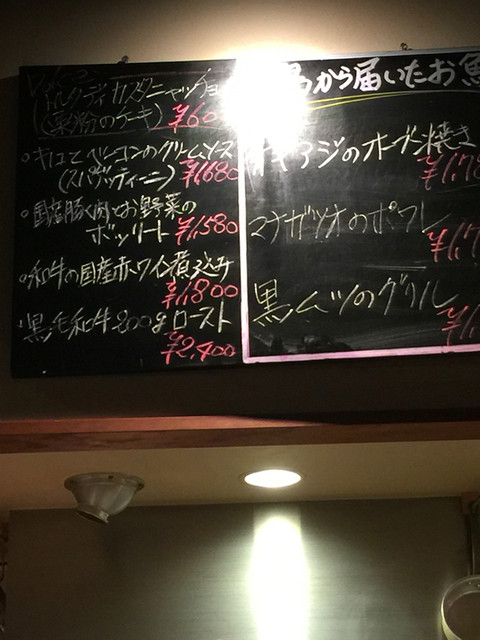 トルタ ディ カスターニャッチョ
(栗粉のケーキ) ¥60
ベーコンのクリームソース
(スパゲッティーニ) ¥1,680
国産豚肉とお野菜の
ボッリート ¥1,580
和牛の国産赤ワイン煮込み
¥1,800
黒毛和牛200gロースト
¥2,400
から届いたお魚
アジのオーブン焼き
¥1,78
マナガツオのポワレ
¥1,7
黒ムツのグリル
¥1,